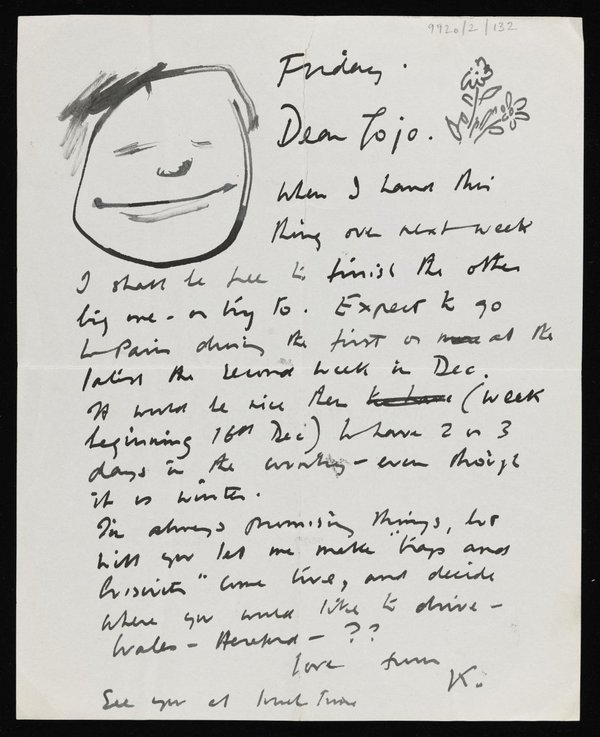 9920/2/132
Friday.
Dear Jojo.
When I hand this
thing over next week
I shall be free to finish the other
big one - or try to. Expect to go
to Paris during the first or at the
latest the second week in Dec.
It would be nice then to have (week
beginning 16th Dec) to have 2 or 3
days in the country - even though
it is winter.
I'm always promising things, but
will you let me make "trips and
" come true, and decide
where you would like to drive -
Wales - Hereford - ??
love from
K.
See you at lunch time